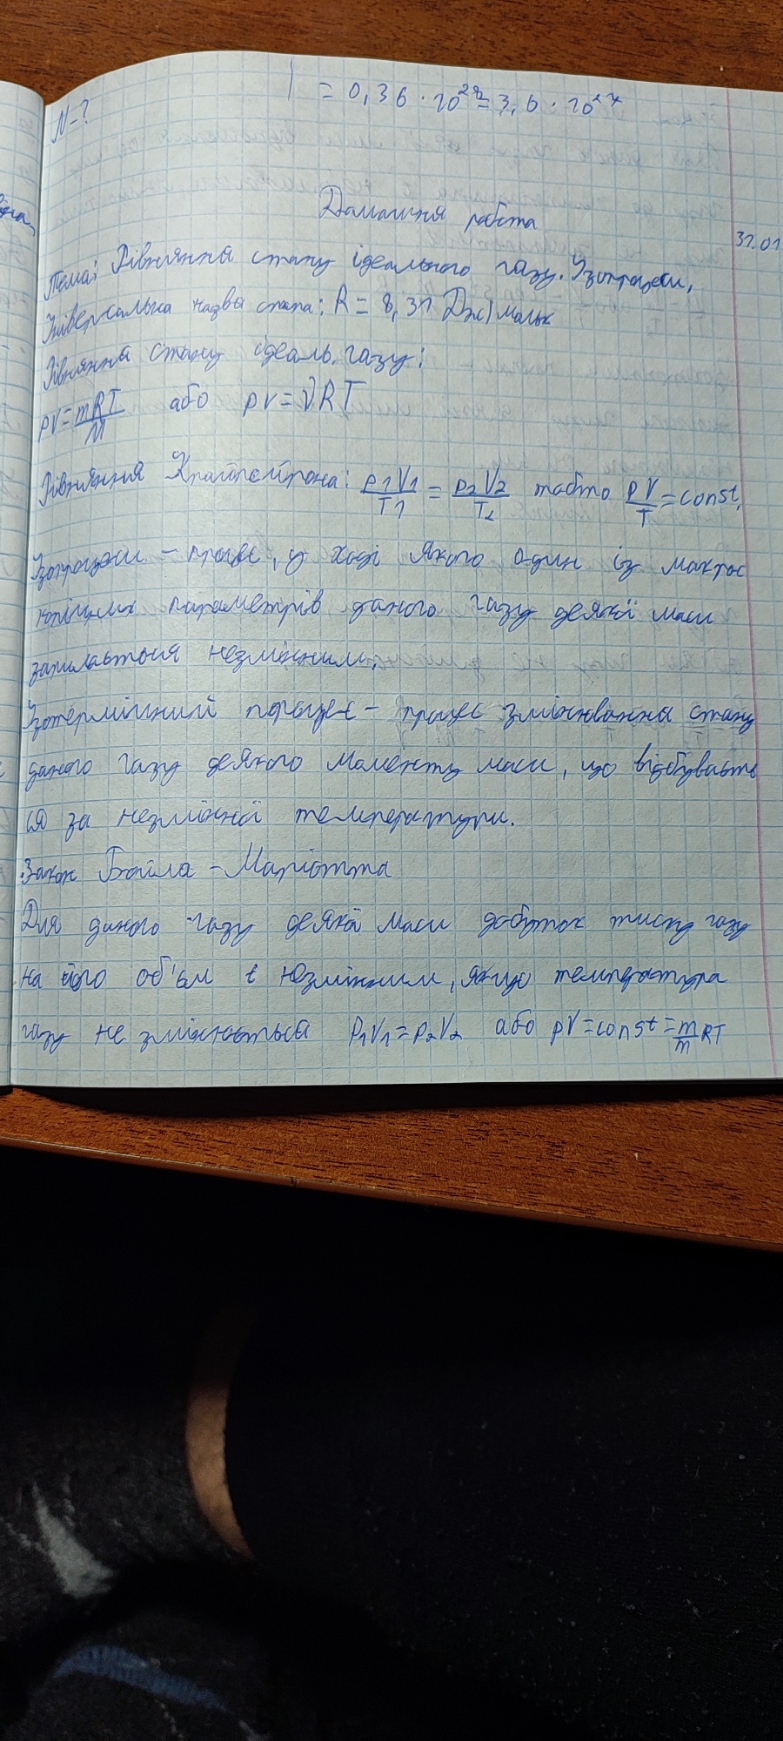 = 0,36 · 10²⁸ = 3,6 · 10²⁷
N-?
Домашня робота
31.01
Тема: Рівняння стану ідеального газу. Ізопроцеси.
Універсальна газова стала: R = 8,31 Дж/мольк
Рівняння стану ідеаль. газу:
pV = mRT/M або pV = νRT
Рівняння Клапейрона: p₁V₁/T₁ = p₂V₂/T₂ тобто pV/T = const.
Ізопроцеси – процес, у ході якого один із макрос
копічних параметрів даного газу деякої маси
залишається незмінним.
Ізотермічний порцес – процес змінювання стану
даного газу деякого моменту маси, що відбуваєть
ся за незмінної температури.
Закон Бойля – Маріотта
Для даного газу деякої маси добуток тиску газу
на його об'єм є незмінним, якщо температура
газу не змінюється P₁V₁ = P₂V₂ або pV = const = m/m RT